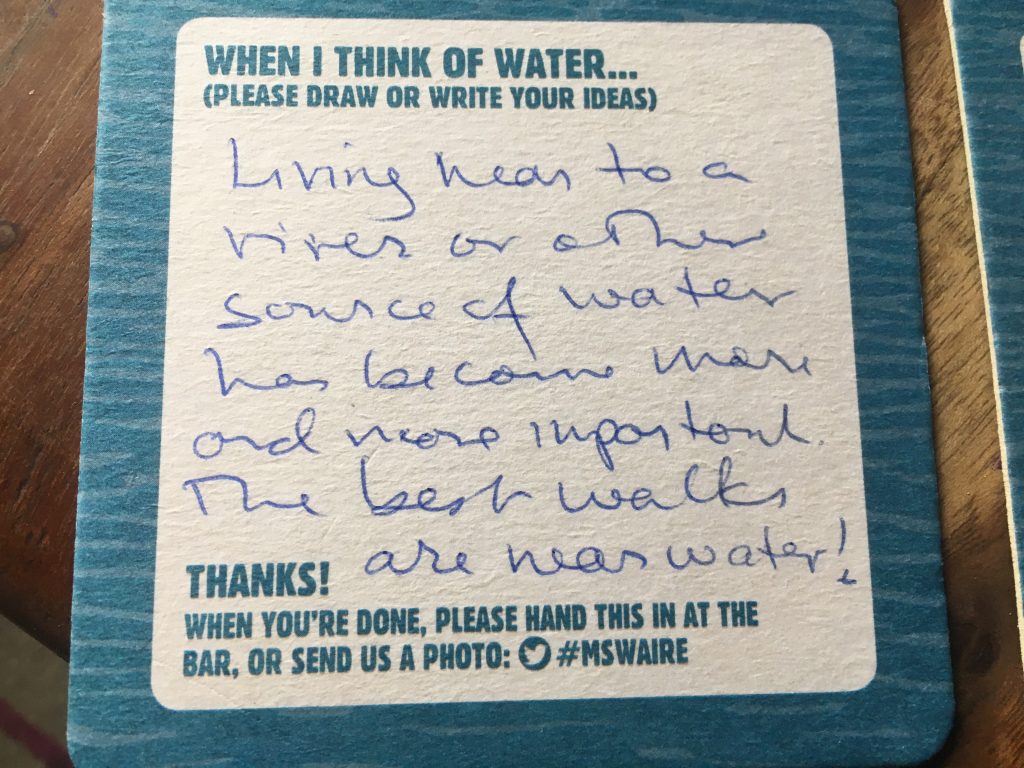 WHEN I THINK OF WATER...
(PLEASE DRAW OR WRITE YOUR IDEAS)
Living near to a
river or other
source of water
has become more
and more important.
The best walks
are near water!
THANKS!
WHEN YOU'RE DONE, PLEASE HAND THIS IN AT THE
BAR, OR SEND US A PHOTO: #MSWAIRE